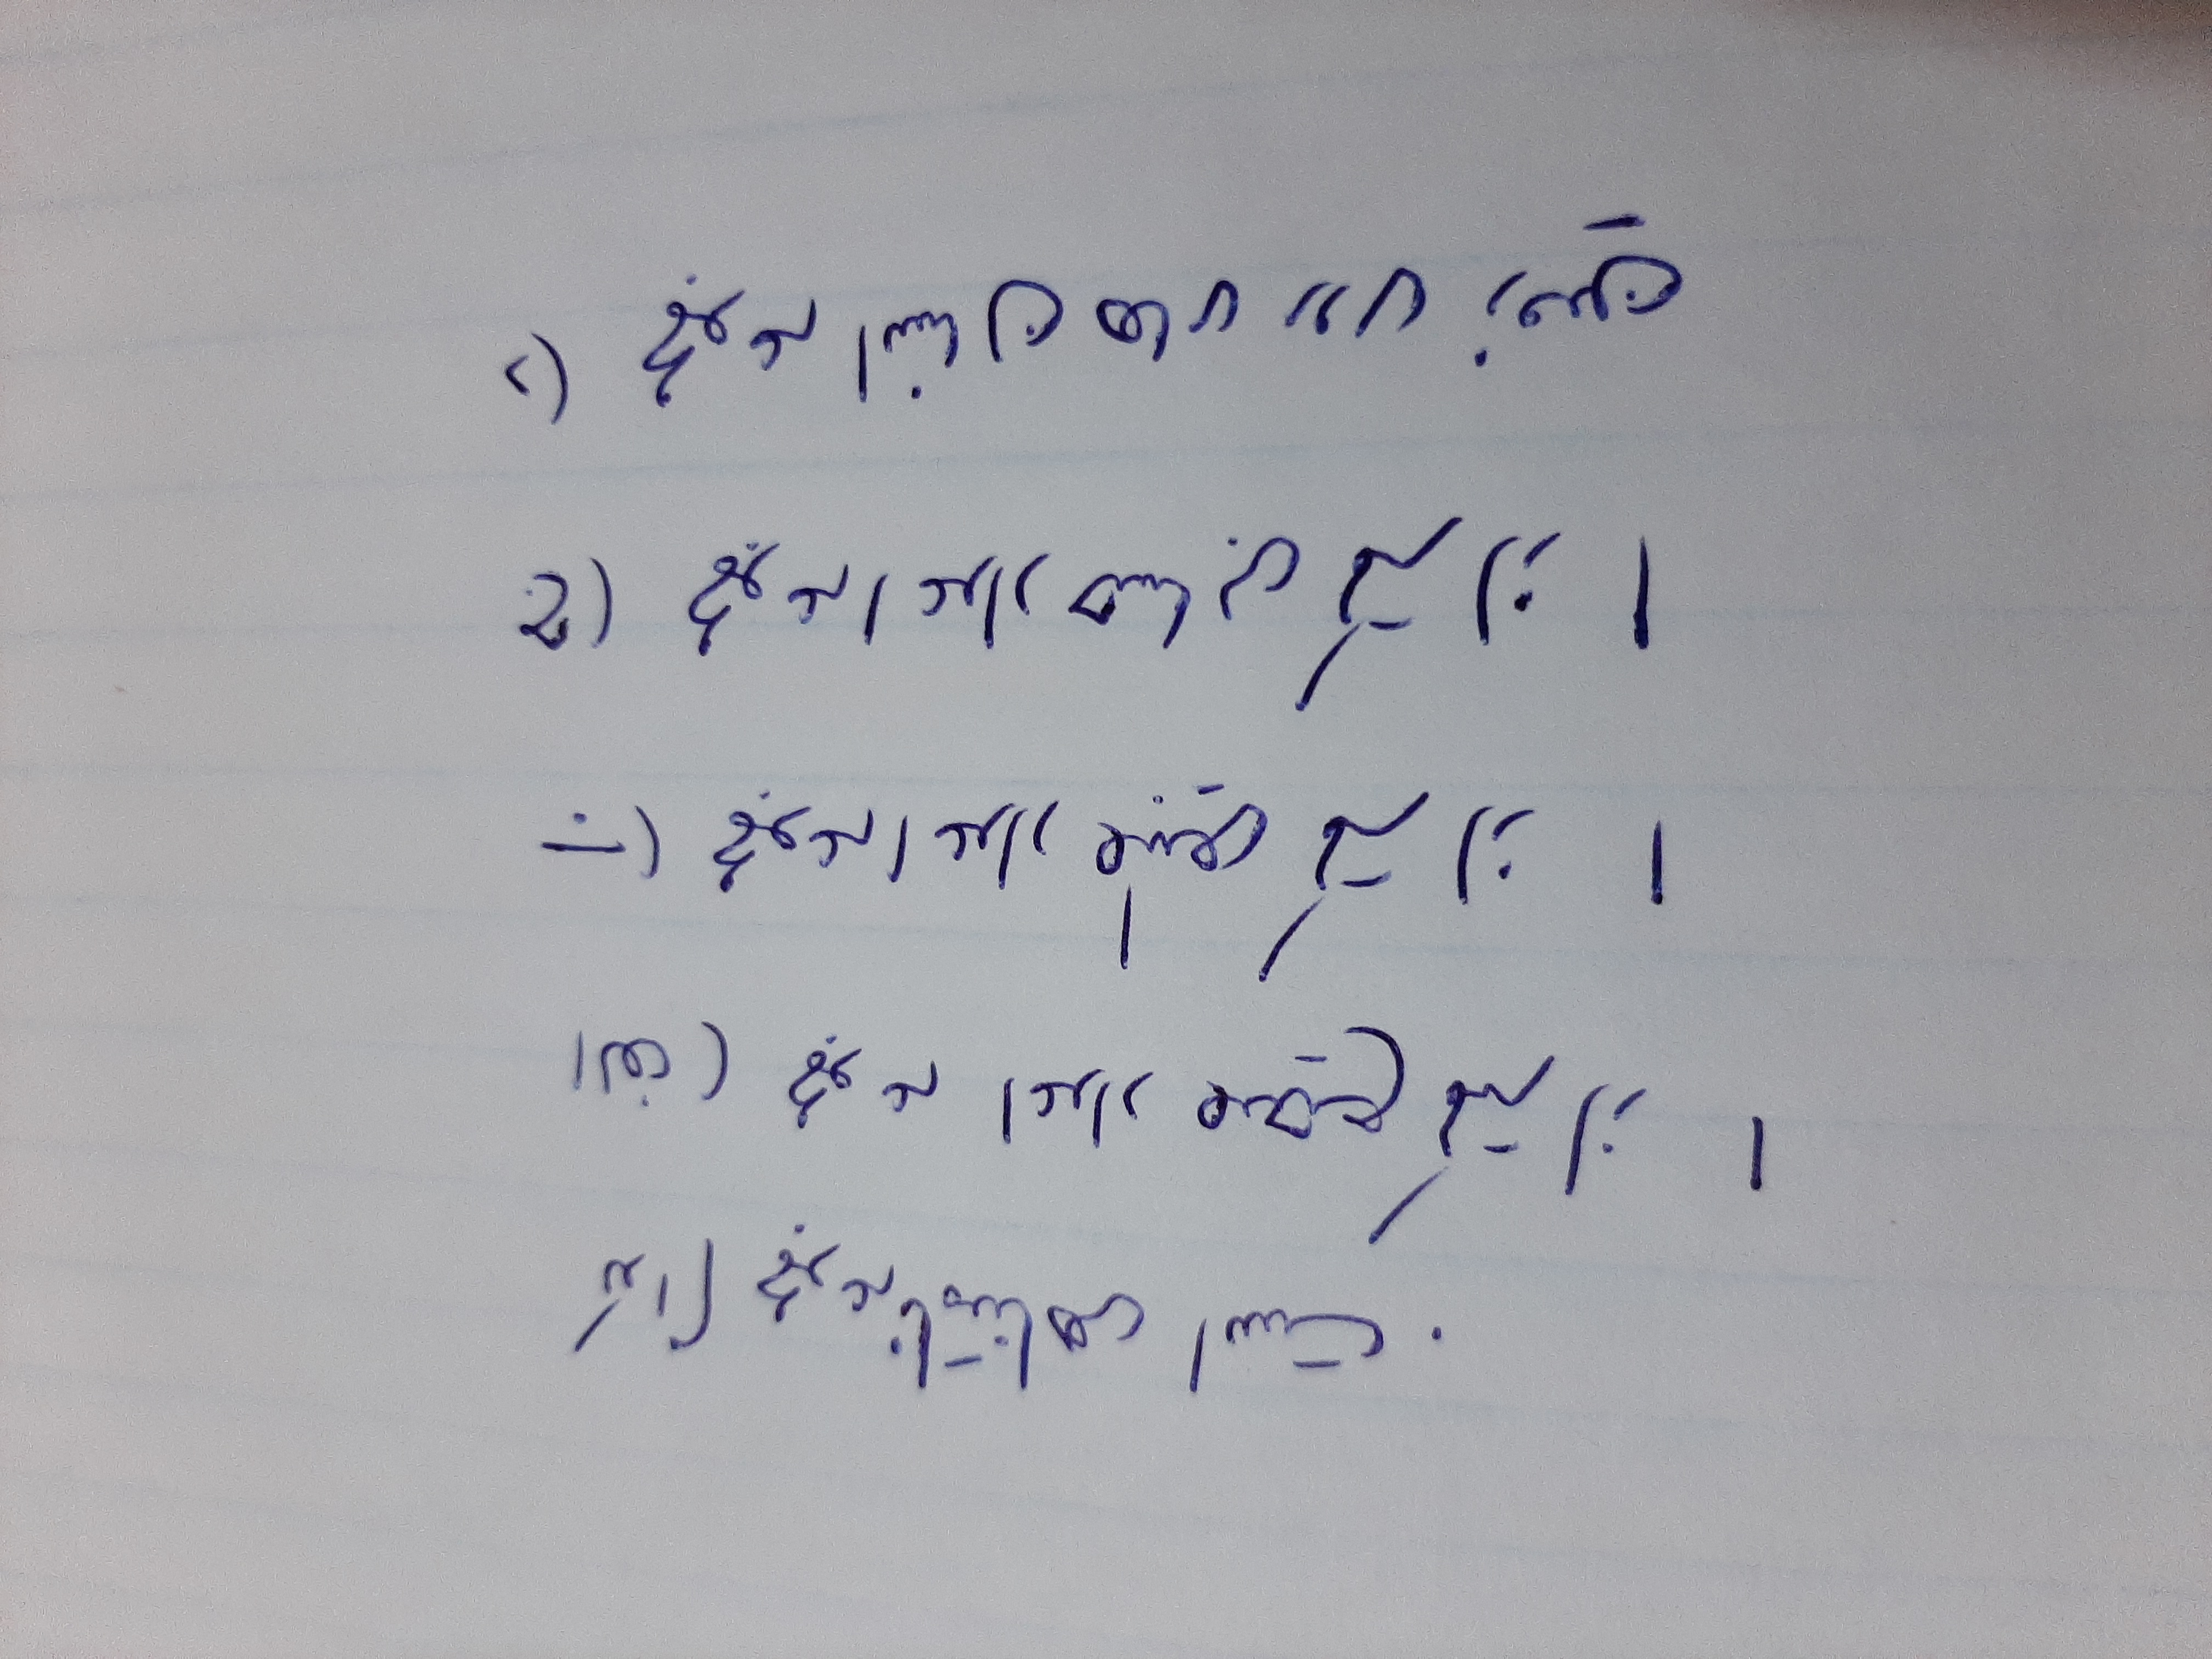 کدام مجموعه نامتناهی است.
الف) مجموعه اعداد صحیح کمتر از ۱
ب) مجموعه اعداد طبیعی کمتر از ۱
ج) مجموعه اعداد حسابی کمتر از ۱
د) مجموعه انسان های روی زمین